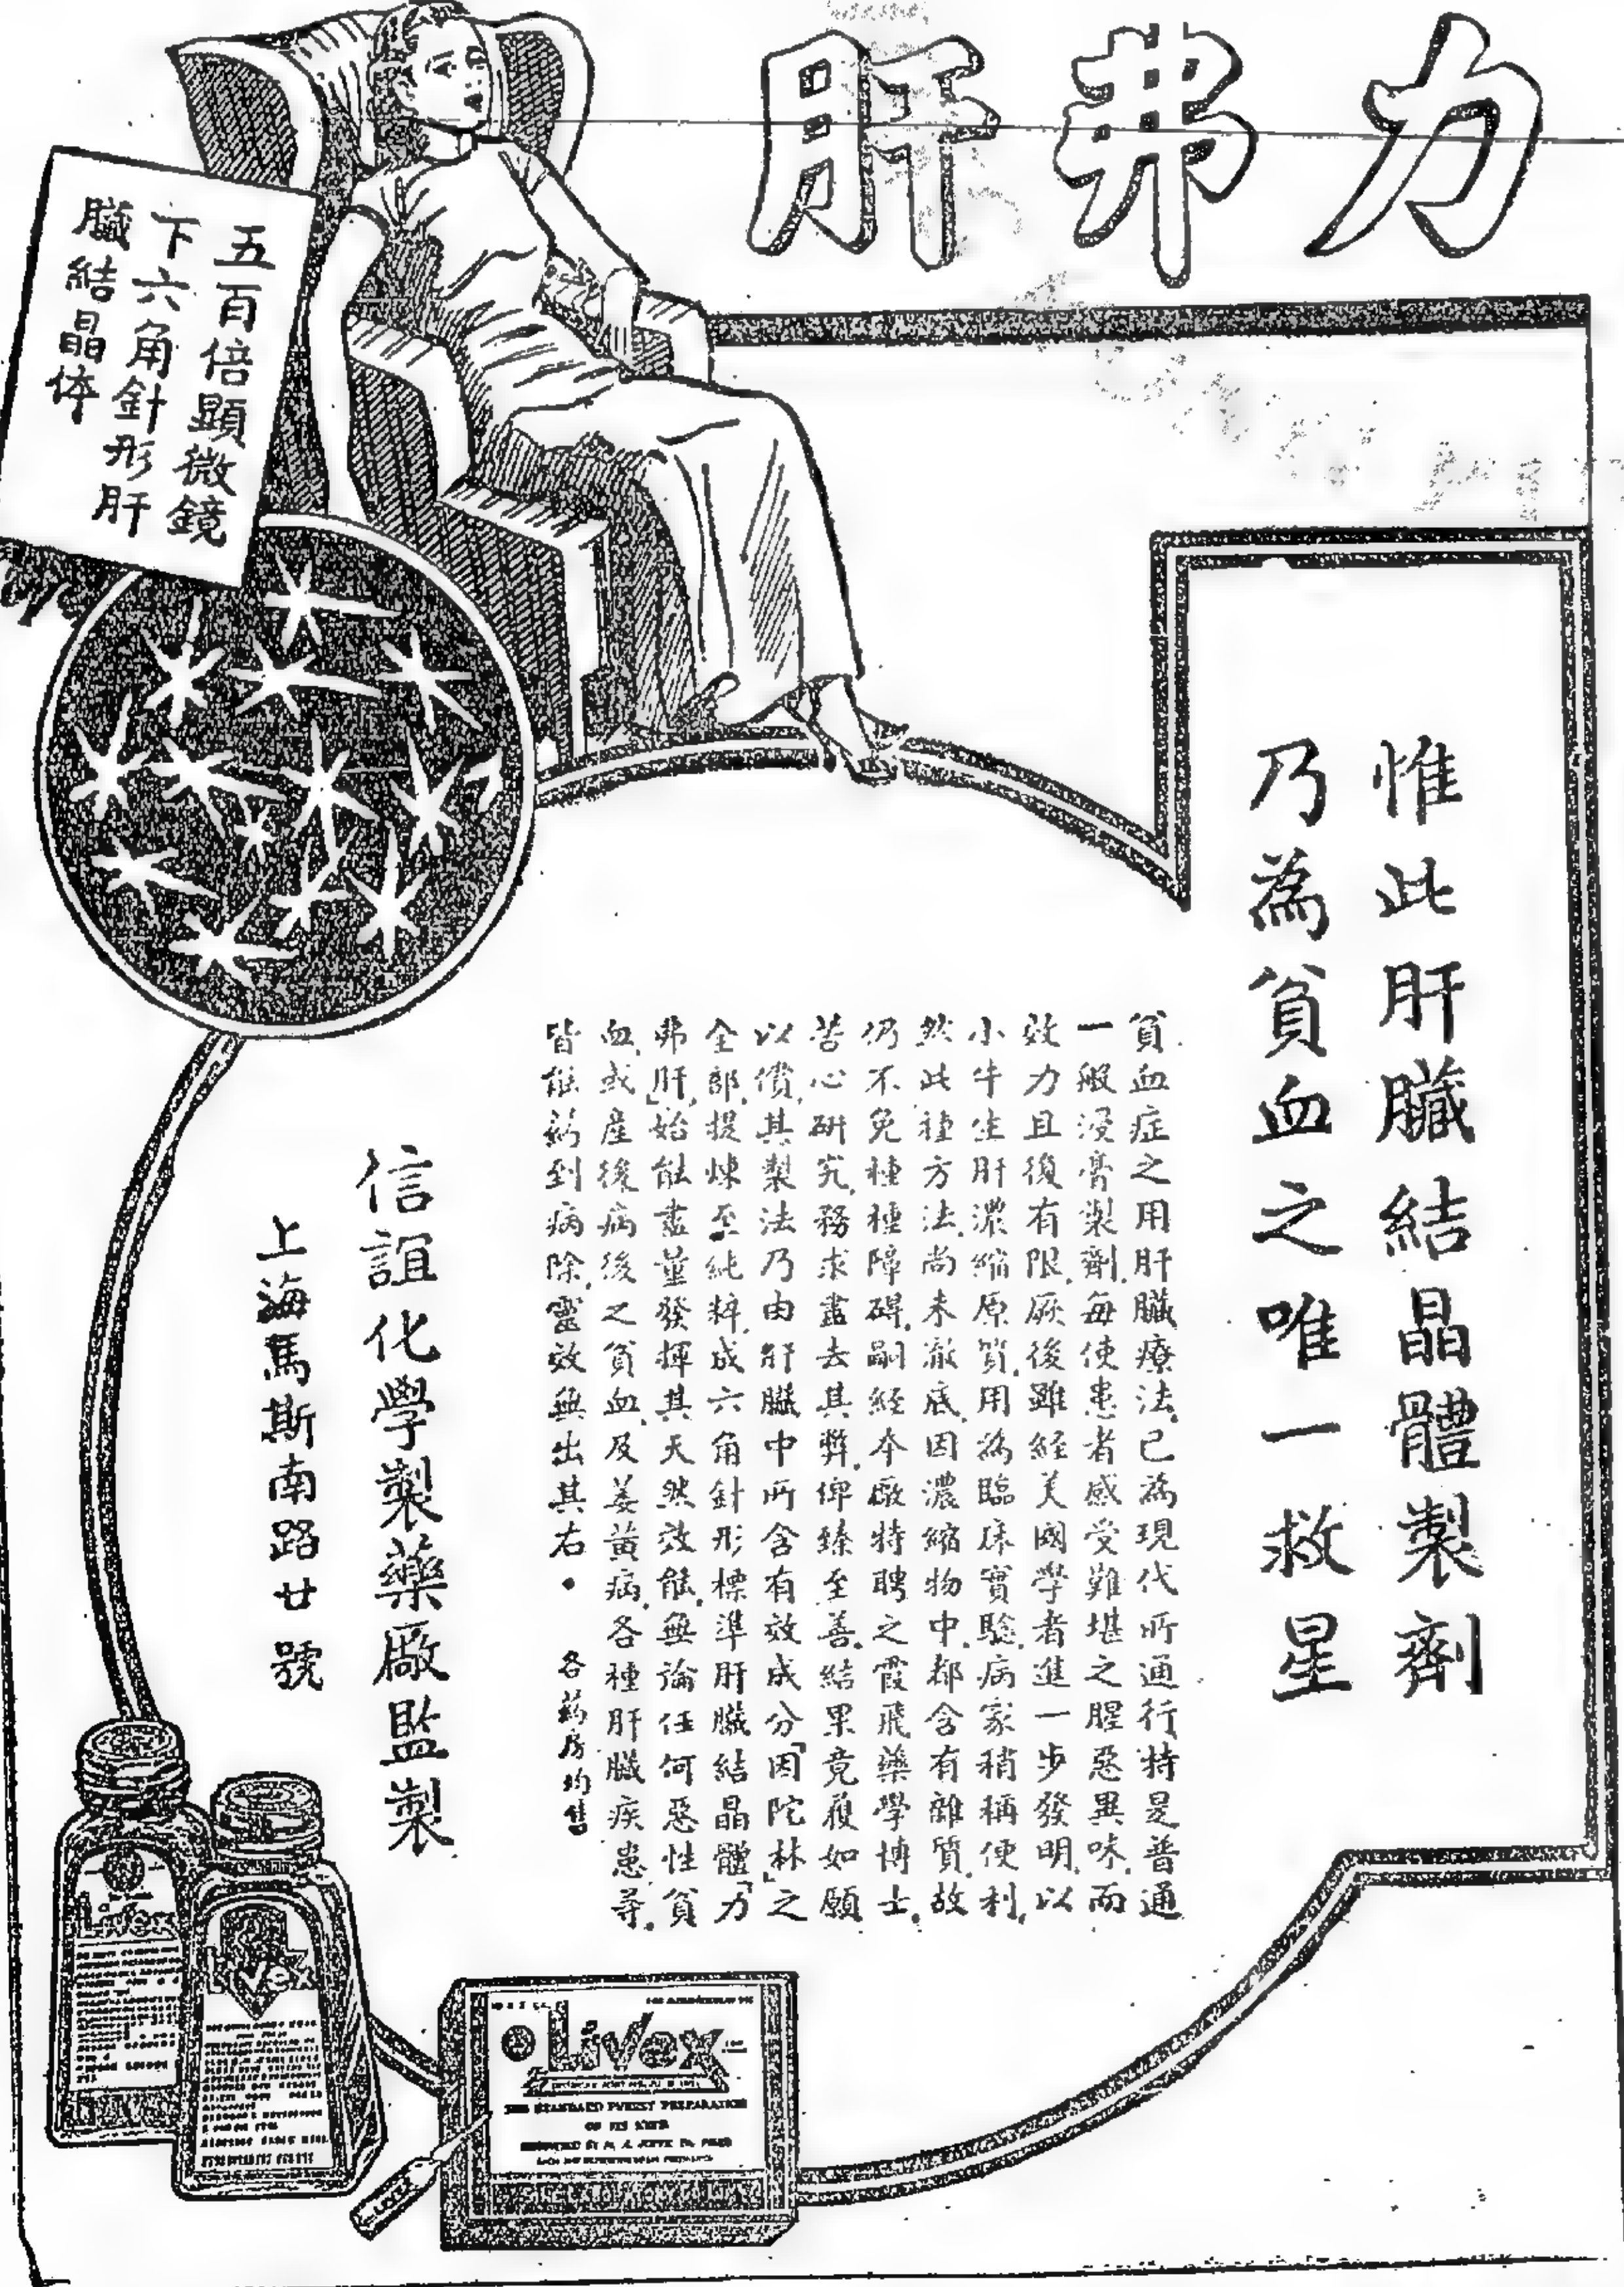 力弗肝
惟此肝臟結晶體製劑
乃為貧血之唯一救星
貧血症之用肝臟療法、已為現代所通行、特是普通
一般浸膏製劑、每使患者感受難堪之腥惡異味、而
效力且復有限、厥後雖經美國學者進一步發明、以
小牛生肝濃縮原質、用為臨床實驗、病家稍稱便利、
然此種方法、尚未澈底、因濃縮物中、都含有雜質、故
仍不免種種障碍、嗣經本廠特聘之霞飛藥學博士、
苦心研究、務求盡去其弊、俾臻至善、結果竟獲如願
以償、其製法乃由肝臟中所含有效成分「因陀林」之
全部、提煉至純粹、成六角針形標準肝臟結晶體「力
弗肝」、始能盡量發揮其天然效能、無論任何惡性貧
血、或產後病後之貧血、及萎黃病、各種肝臟疾患等、
皆能葯到病除、靈效無出其右。
各葯房均售
信誼化學製藥廠監製
上海馬斯南路廿號
五百倍顯微鏡
下六角針形肝
臟結晶体
Livex
Livex
Livex
THE STANDARD PUREST PREPARATION
OF ITS KIND